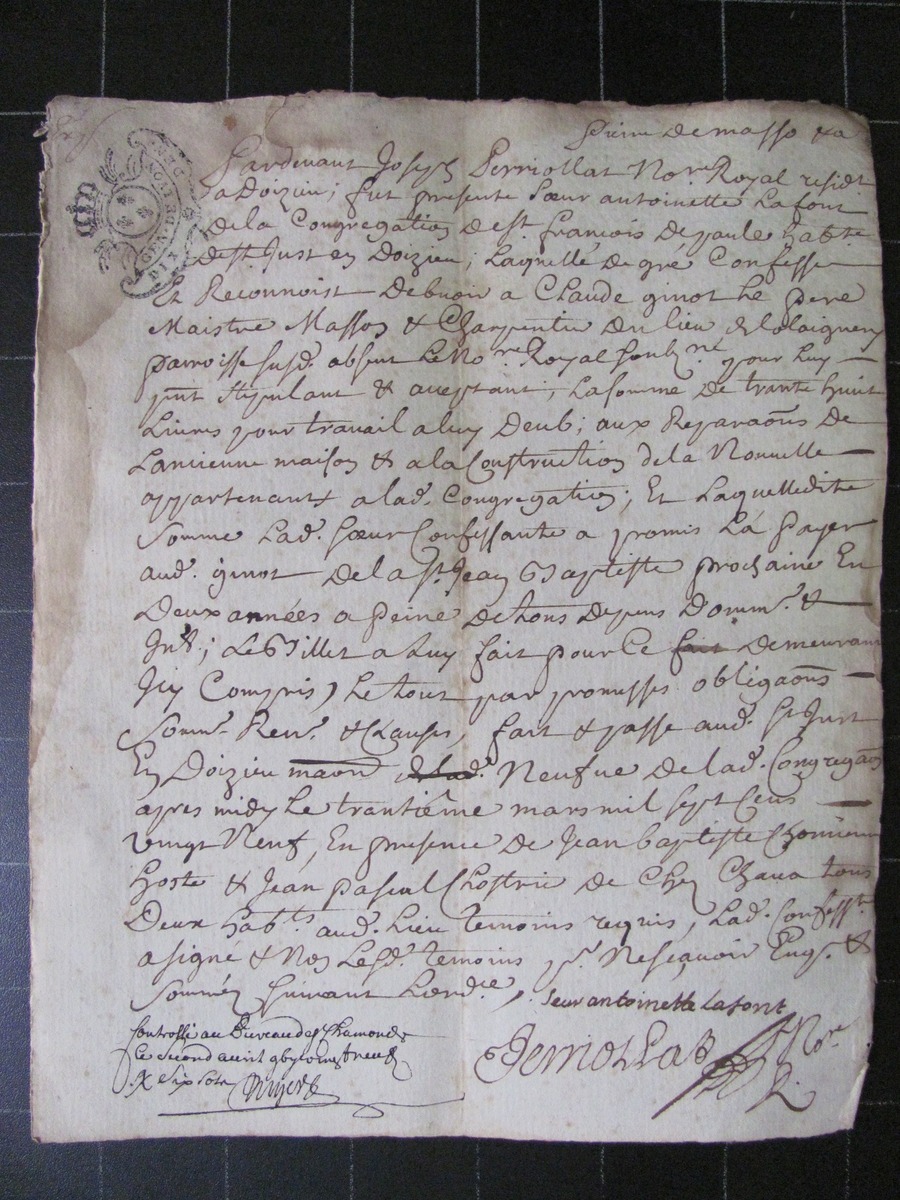 Pardevant Joseph Perriollat Nore Royal residt
a Doizieu; fut presente sœur antoinette Lafont
de la Congregation de st francois de paule habte
de st Just en Doizieu; Laquelle de gré Confesse
Et Reconnoist Debvoir a Claude ginot Le pere
Maistre Masson & Charpentier du lieu
parroisse susd. absent Le Nore Royal soubzné pour Luy
pnt stipulant & acceptant, La somme De trante huit
Livres pour travail a luy Deub; aux Reparaons De
Lancienne maison & a la Construction de la Nouvelle
appartenant a lad. Congregation; Et Laquelle dite
Somme Lad. sœur Confessante a promis La payer
aud. ginot De la st. Jean Baptiste prochaine En
Deux années a peine De tous depens Domm. &
Intts; Le Billet a Luy fait pour Ce fait Demeurant
Icy Compris, Le tout par promesses obligaons
Soum. Ren. & Clauses, fait & passe aud. st Just
En Doizieu maon de lad. Neufve De lad. Congregaon
apres midy Le trantième mars mil sept Cens
vingt Neuf, En presence De Jean baptiste
hoste & Jean pascal De Chez Chava tous
Deux habts. aud. Lieu temoins requis, Lad. Confesste
a signé & Non Lesd. temoins pr. Nescavoir Enqs. &
Sommés suivant Lordce,
seur antoinette Lafont
Controllé au Bureau de st Chamond
Le second avril
Rx six sols
Perriollat Nore R.
GEN. DE LYON
DIX DEN.